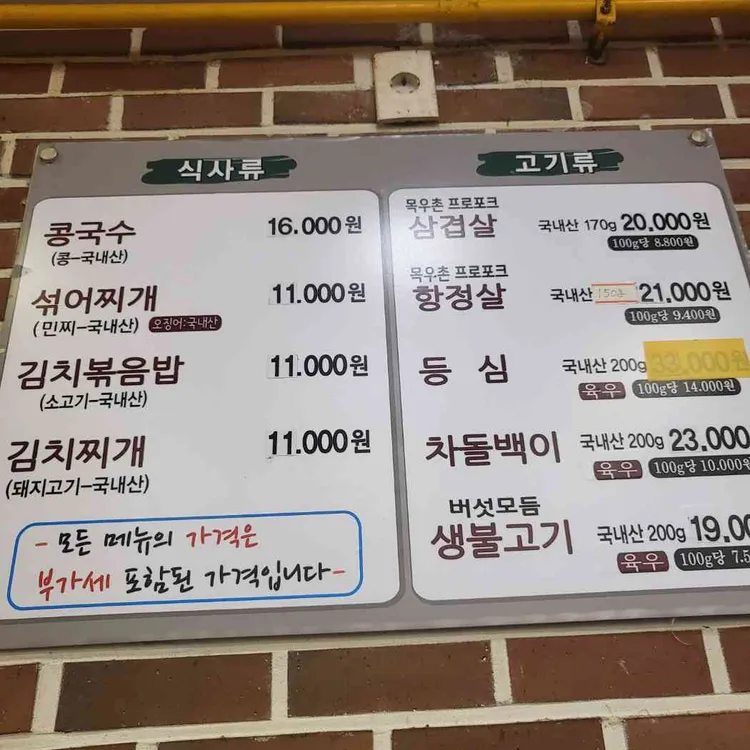 식사류
콩국수 16.000원
(콩-국내산)
섞어찌개 11.000원
(민찌-국내산) 오징어:국내산
김치볶음밥 11.000원
(소고기-국내산)
김치찌개 11.000원
(돼지고기-국내산)
- 모든 메뉴의 가격은
부가세 포함된 가격입니다-
고기류
목우촌 프로포크
삼겹살 국내산 170g 20.000원
100g당 8.800원
목우촌 프로포크
항정살 국내산 150g 21.000원
100g당 9.400원
등 심 국내산 200g 33,000원
육우 100g당 14.000원
차돌백이 국내산 200g 23,000
육우 100g당 10.000원
버섯모듬
생불고기 국내산 200g 19.00
육우 100g당 7.5